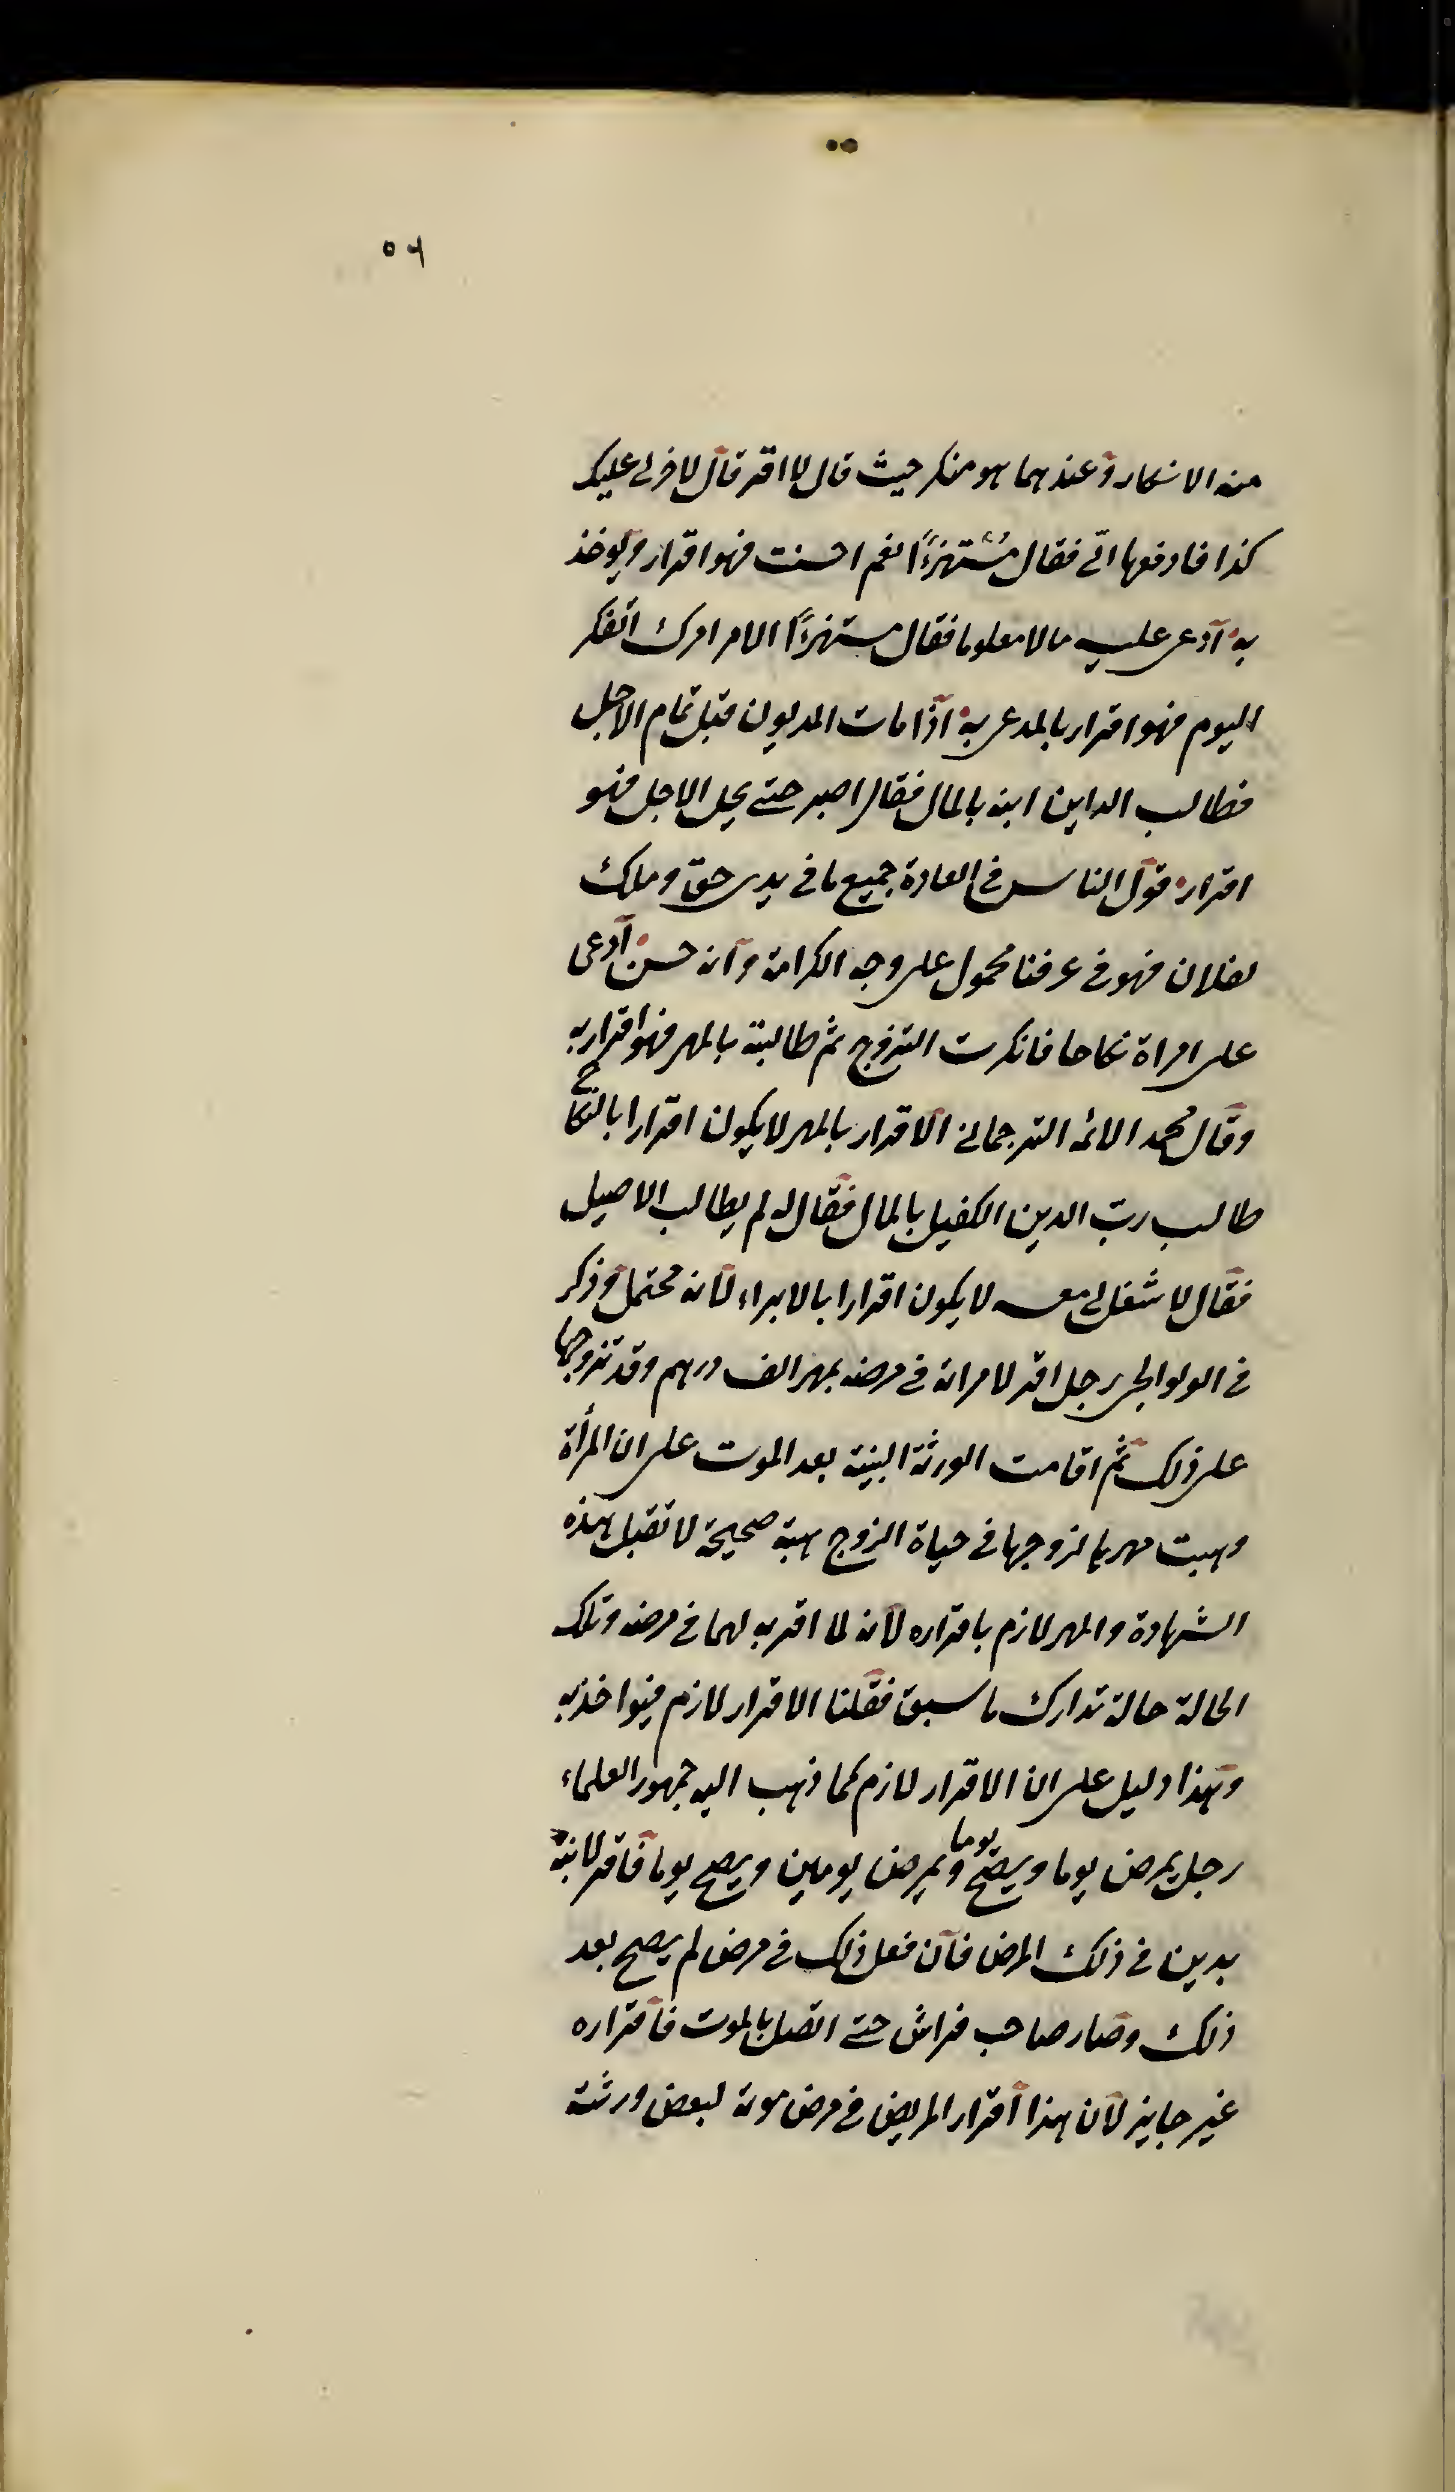 ٥٦
من الانكار وعندهما هو منكر حيث قال لا اقر قال لاخر لي عليك
كذا فادفعها الىّ فقال مُستهزءًا نعم احسنت فهو اقرار ويوخذ
به ادعى عليه مالا معلوما فقال مستهزءًا الامر امرك اتفكر
اليوم فهو اقرار بالمدعى به اذا مات المديون قبل تمام الاجل
فطالب الداين ابنه بالمال فقال اصبر حتى يحل الاجل فهو
اقرار قول الناس في العادة جميع ما في يدى حق وملك
لفلان فهو في عرفنا محمول على وجه الكرامة وانه حسن ادعى
على امراة نكاحا فانكرت التزوج ثم طالبته بالمهر فهو اقرار به
وقال محمد الائمه الترجمانى الاقرار بالمهر لا يكون اقرارا بالنكاح
طالب ربّ الدين الكفيل بالمال فقال له لم يطالب الاصيل
فقال لا شغل لى معه لا يكون اقرارا بالابراء لانه محتمل وذكر
في الولوالجى رجل اقر لامراته في مرضه بمهر الف درهم وقد تزوجها
على ذلك ثم اقامت الورثة البينة بعد الموت على ان المرأة
وهبت مهرها لزوجها في حياة الزوج هبة صحيحة لا تقبل هذه
الشهادة والمهر لازم باقراره لانه لما اقر به لها في مرضه وتلك
الحالة حالة تدارك ما سبق فقلنا الاقرار لازم فيواخذ به
وهذا دليل على ان الاقرار لازم كما ذهب اليه جمهور العلماء
رجل يمرض يوما ويصح يوما ويمرض يومين ويصح يوما فاقر لابنه
بدين في ذلك المرض فان فعل ذلك في مرض لم يصح بعد
ذلك وصار صاحب فراش حتى اتصل بالموت فاقراره
غير جايز لان هذا اقرار المريض في مرض موته لبعض ورثته